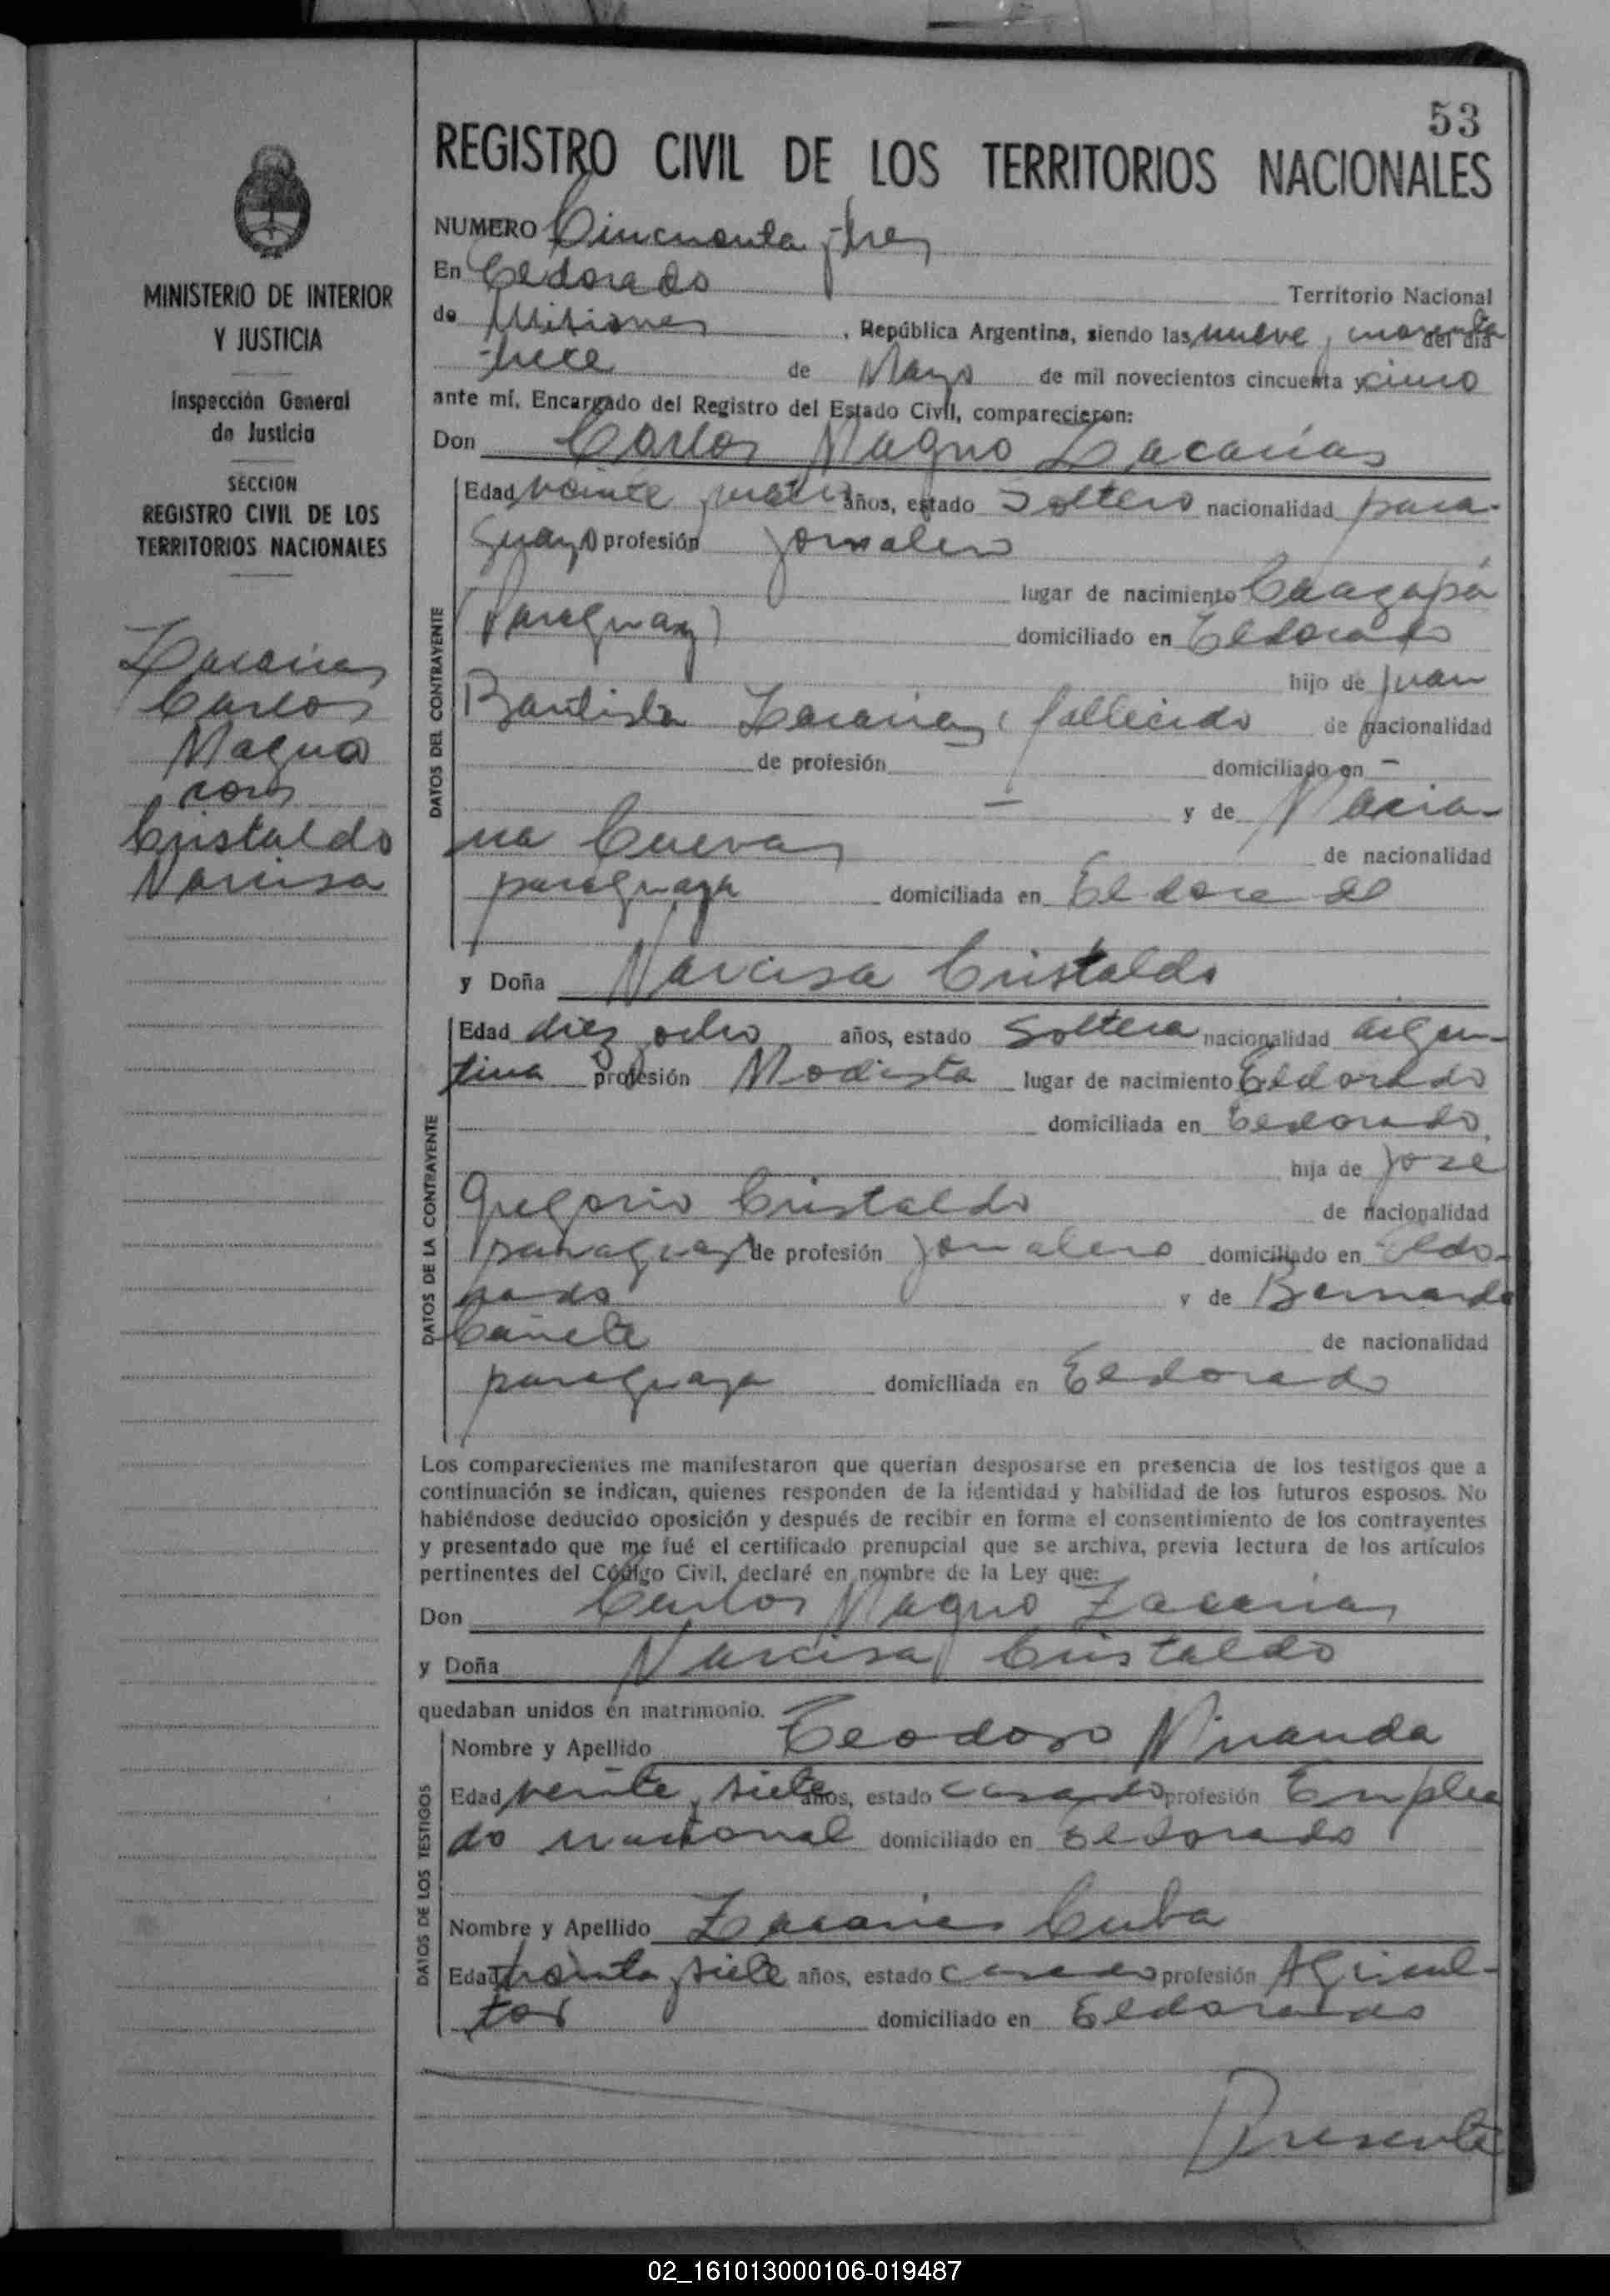 53
REGISTRO CIVIL DE LOS TERRITORIOS NACIONALES
MINISTERIO DE INTERIOR
Y JUSTICIA
Inspección General
de Justicia
SECCION
REGISTRO CIVIL DE LOS
TERRITORIOS NACIONALES
Zacarias
Carlos
Magno
con
Cristaldo
Narcisa
NUMERO Cincuenta y tres
En Eldorado Territorio Nacional
de Misiones, República Argentina, siendo las nueve y del día
trece de Mayo de mil novecientos cincuenta y cinco
ante mí, Encargado del Registro del Estado Civil, comparecieron:
Don Carlos Magno Zacarias
DATOS DEL CONTRAYENTE
Edad veinte y cuatro años, estado Soltero nacionalidad para-
guayo profesión jornalero
lugar de nacimiento Caazapá
(Paraguay) domiciliado en Eldorado
hijo de Juan
Bautista Zacarias, fallecido de nacionalidad
de profesión domiciliado en –
— y de Maria-
na Cuevas de nacionalidad
paraguaya domiciliada en Eldorado
y Doña Narcisa Cristaldo
DATOS DE LA CONTRAYENTE
Edad diez y ocho años, estado Soltera nacionalidad argen-
tina profesión Modista lugar de nacimiento Eldorado
domiciliada en Eldorado,
hija de José
Gregorio Cristaldo de nacionalidad
paraguayo de profesión jornalero domiciliado en Eldo-
rado y de Bernarda
Cañete de nacionalidad
paraguaya domiciliada en Eldorado
Los comparecientes me manifestaron que querían desposarse en presencia de los testigos que a
continuación se indican, quienes responden de la identidad y habilidad de los futuros esposos. No
habiéndose deducido oposición y después de recibir en forma el consentimiento de los contrayentes
y presentado que me fué el certificado prenupcial que se archiva, previa lectura de los artículos
pertinentes del Código Civil, declaré en nombre de la Ley que:
Don Carlos Magno Zacarias
y Doña Narcisa Cristaldo
quedaban unidos en matrimonio.
DATOS DE LOS TESTIGOS
Nombre y Apellido Teodoro Miranda
Edad veinte y siete años, estado casado profesión Emplea
do nacional domiciliado en Eldorado
Nombre y Apellido Zacarias Cuba
Edad treinta y siete años, estado casado profesión Agricul-
tor domiciliado en Eldorado
Presente
02_161013000106-019487